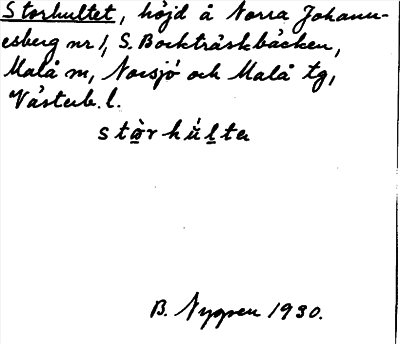 Storhultet, höjd å Norra Johann-
esberg nr 1, S. Bockträskbäcken,
Malå sn, Norsjö och Malå tg,
Västerb. l.
stòrhúlta
B. Nygren 1930.